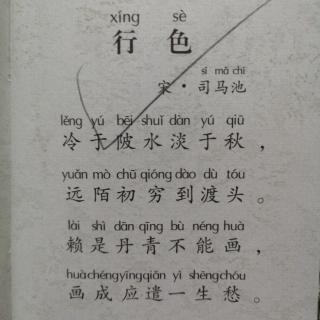 xíng sè
行色
sī mǎ chí
宋·司马池
lěng yú bēi shuǐ dàn yú qiū
冷于陂水淡于秋，
yuǎn mò chū qióng dào dù tóu
远陌初穷到渡头。
lài shì dān qīng bù néng huà
赖是丹青不能画，
huà chéng yīng qiǎn yì shēng chóu
画成应遣一生愁。